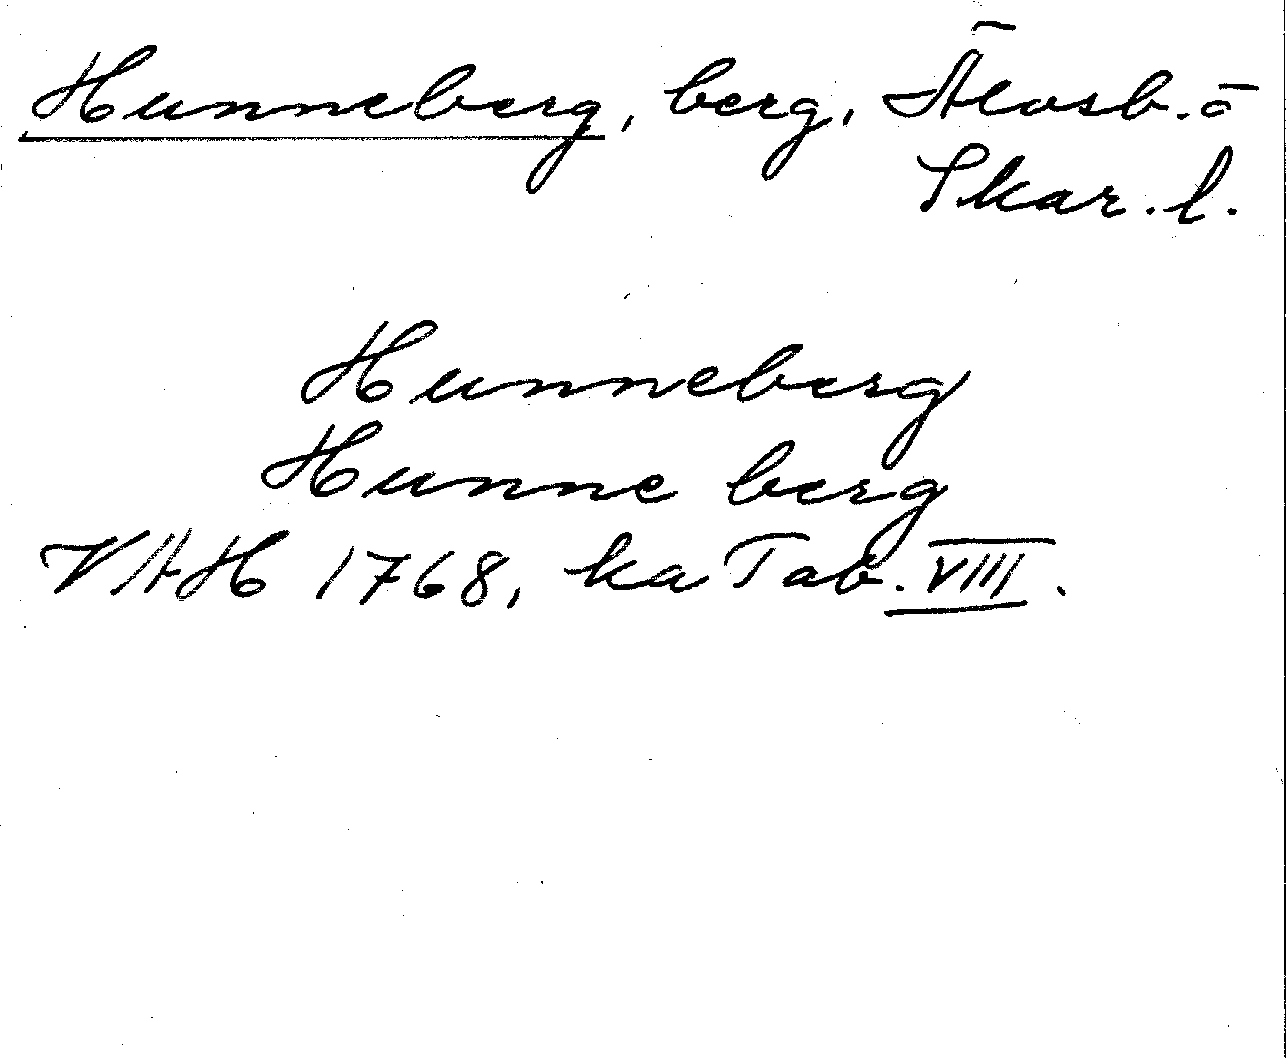 Hunneberg, berg, Älvsb. o
Skar. l.
Hunneberg
Hunne berg
VAH 1768, ka Tab. VIII.